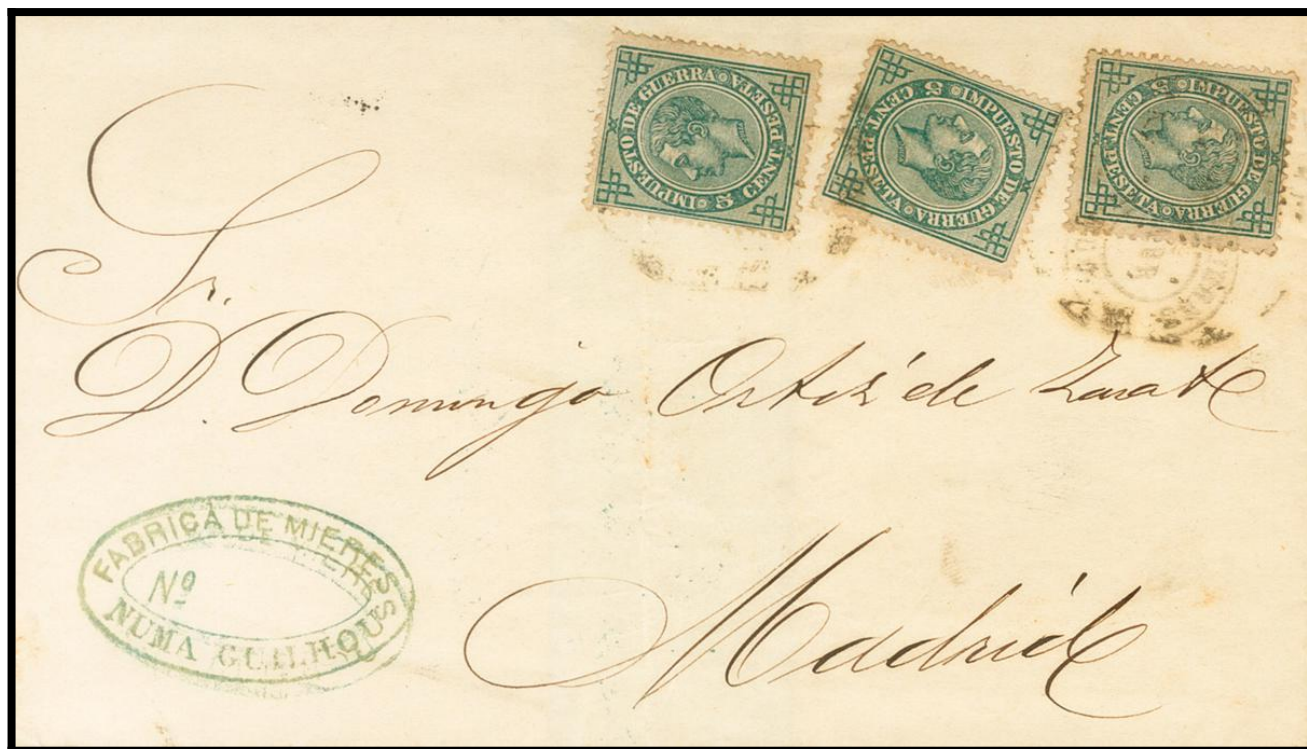 IMPUESTO DE GUERRA · 5 CENT. PESETA
IMPUESTO DE GUERRA · 5 CENT. PESETA
IMPUESTO DE GUERRA · 5 CENT. PESETA
Sr.
D. Domingo Ortiz de Zarate
Madrid
FABRICA DE MIERES
Nº
NUMA GUILHOU